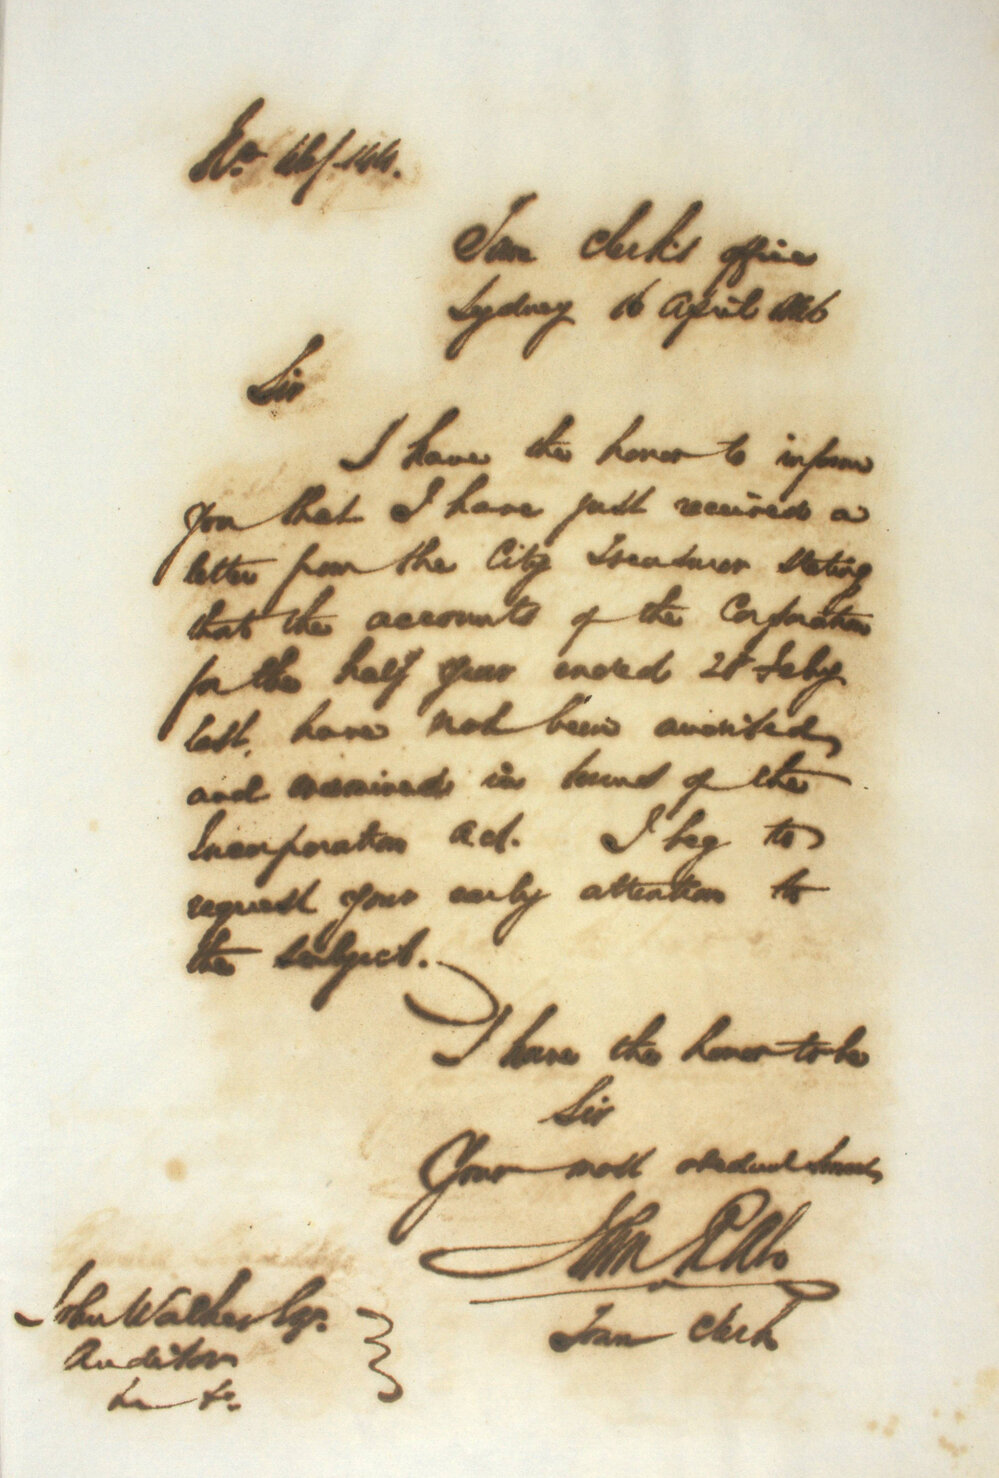 No. 46/144.
Town Clerk's office
Sydney 16 April 1846
Sir
I have the honor to inform
you that I have just received a
letter from the City Treasurer stating
that the accounts of the Corporation
for the half year ended 28 Feby
last, have not been audited
and examined in terms of the
Incorporation Act. I beg to
request your early attention to
the subject.
I have the honor to be
Sir
Your most obedient Servant
John
Town Clerk
John Walker Esqr.
Auditor